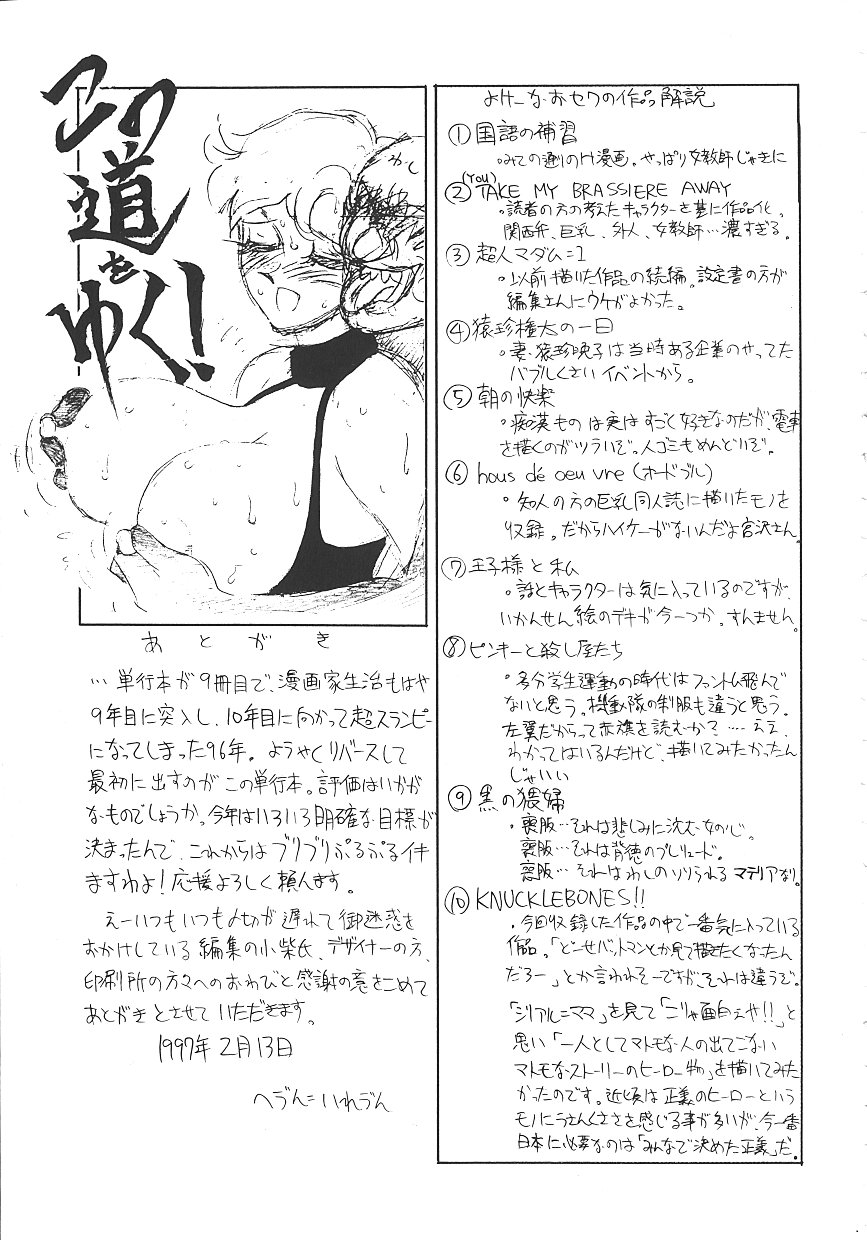 この
道
を
ゆく!
あとがき
…単行本が9冊目で、漫画家生活もはや
9年目に突入し、10年目に向かって超スランピー
になってしまった96年。ようやくリバースして
最初に出すのがこの単行本。評価はいかが
なものでしょうか。今年はいろいろ明確な目標が
決まったんで、これからはブリブリぷるぷるイキ
ますわよ!応援よろしく頼んます。
えーいつもいつも〆切が遅れて御迷惑を
おかけしている編集の小柴氏、デザイナーの方、
印刷所の方々へのおわびと感謝の意をこめて
あとがきとさせていただきます。
1997年2月13日
へづん=いれづん
よけーなおセワの作品解説
①国語の補習
・みての通りのH漫画。やっぱり女教師じゃきに
②(You)TAKE MY BRASSIERE AWAY
・読者の方の考えたキャラクターを基に作品化。
関西弁、巨乳、外人、女教師…濃すぎる。
③超人マダム=1
・以前描いた作品の続編。設定書の方が
編集さんにウケがよかった。
④猿珍権太の一日
・妻・猿珍映子は当時ある企業のやってた
バブルくさいイベントから。
⑤朝の快楽
・痴漢ものは実はすごく好きなのだが、電車
を描くのがツラいぞ。人ゴミもめんどいぞ。
⑥hous de oeu vre(オードブル)
・知人の方の巨乳同人誌に描いたモノを
収録。だからハイケーがないんだよ宮沢さん。
⑦王子様と私
・話とキャラクターは気に入っているのですが、
いかんせん絵のデキが今一つか。すんません。
⑧ピンキーと殺し屋たち
・多分学生運動の時代はファントム飛んで
ないと思う。機動隊の制服も違うと思う。
左翼だからって赤旗を読むか?……ええ、
わかってはいるんだけど、描いてみたかったん
じゃいい
⑨黒の猥婦
・喪服…それは悲しみに沈む女の心。
喪服…それは背徳のプレリュード。
喪服…それはわしのソソられるマテリアなり。
⑩KNUCKLEBONES!!
・今回収録した作品の中で一番気に入っている
作品。「どーせバットマンとか見て描きたくなったん
だろー」とか言われそーですが、それは違うぞ。
「シリアル=ママ」を見て「こりゃ面白えや!!」と
思い「一人としてマトモな人の出てこない
マトモなストーリーのヒーロー物」を描いてみた
かったのです。近頃は正義のヒーローという
モノにうさんくささを感じる事が多いが、今一番
日本に必要なのは「みんなで決めた正義」だ。